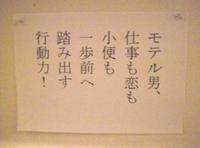 モテル男、
仕事も恋も
小便も
一歩前へ
踏み出す
行動力!